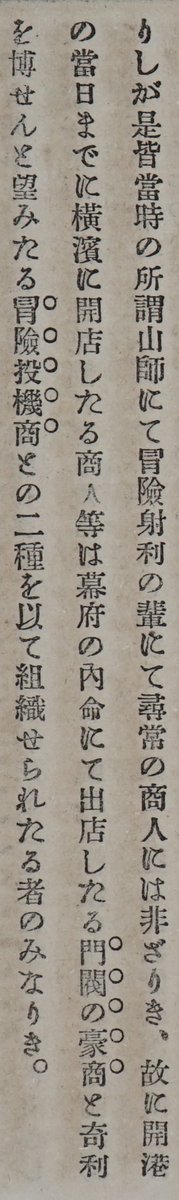 りしが是皆當時の所謂山師にて冒險射利の輩にて尋常の商人には非ざりき、故に開港
の當日までに橫濱に開店したる商人等は幕府の內命にて出店したる門閥の豪商と奇利
を博せんと望みたる冒險投機商との二種を以て組織せられたる者のみなりき。